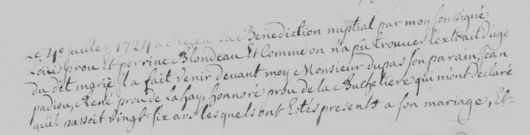 Le 4e juillet 1724 a Receu La Benediction nuptial par moy sousigné
Louis prou Et perrine Blondeau Et Comme on n'a pu trouver lextrait dage
du dit marié Il a fait venir devant moy Monsieur dupas son parain, Jean
padiou, René prou de lahay, honnoré prou de la Buchetiere qui mont declaré
quil passoit vingt six ans les quels ont Estés present a son mariage, Et